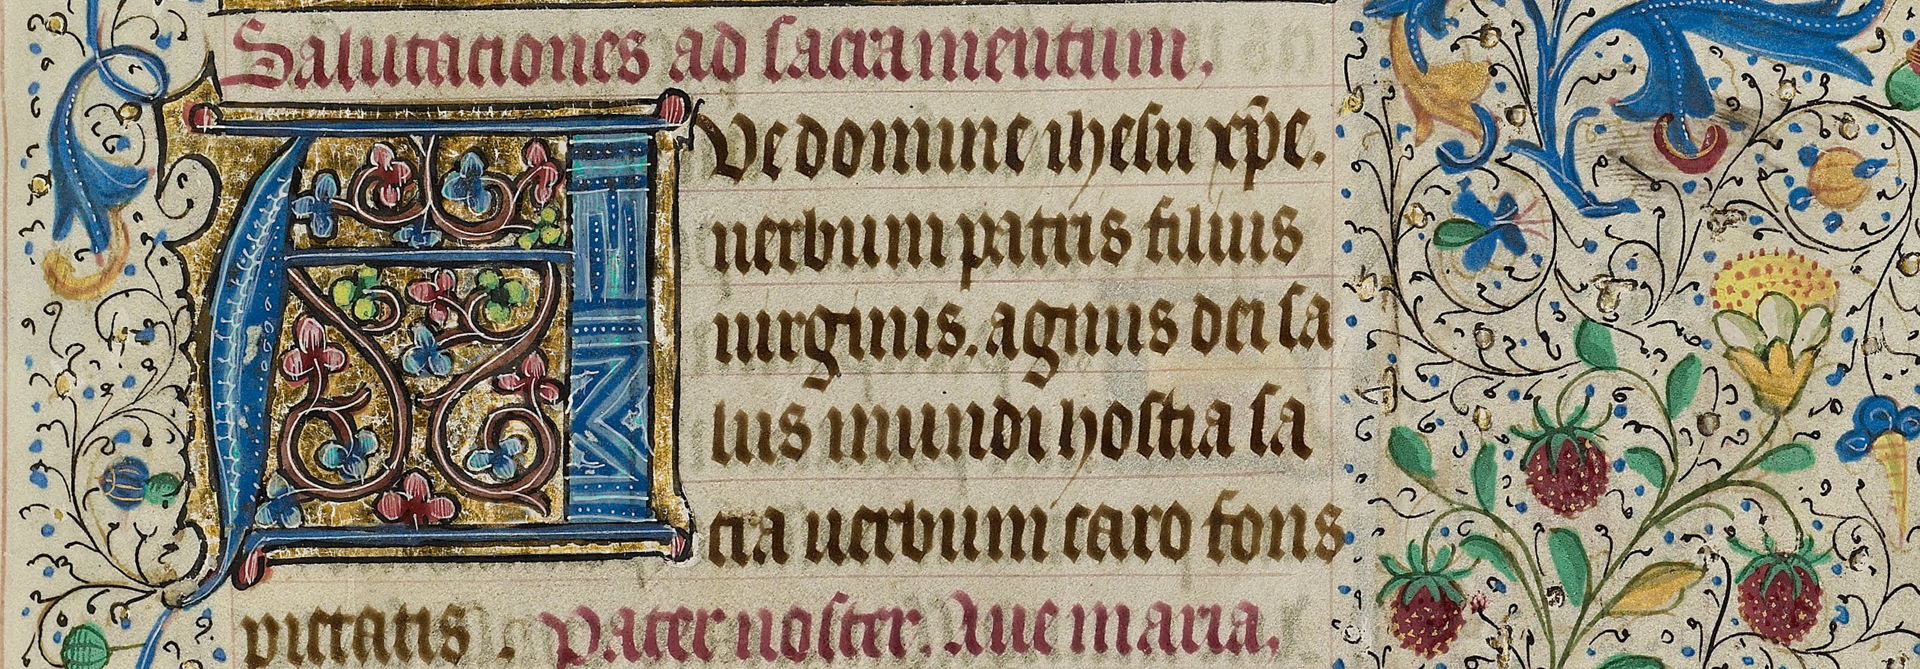 Salutaciones ad sacramentum.
AVe domine ihesu xpe.
uerbum patris filius
uirginis. agnus dei sa
lus mundi hostia sa
cra uerbum caro fons
pietatis. Pater noster. Aue maria.